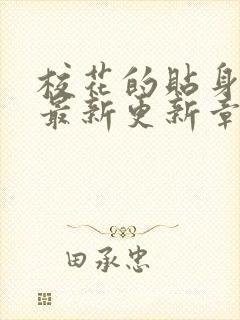 校花的贴身
最新更新章
田承忠